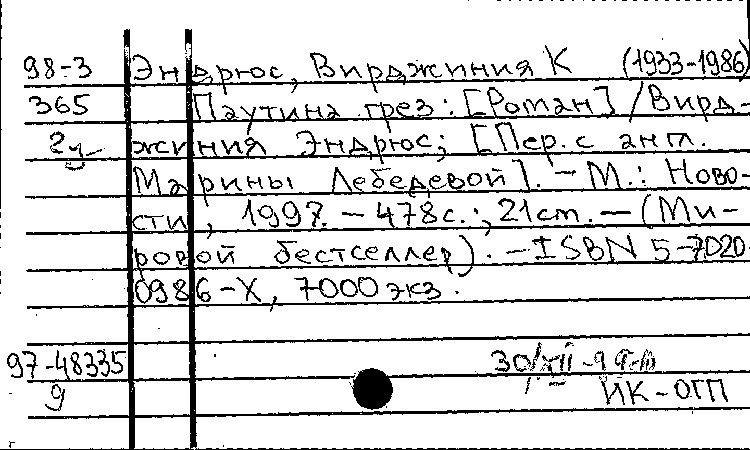 98-3 Эндрюс, Вирджиния К (1933-1986)
365 Паутина грез: [Роман] / Вирд-
2ч жиния Эндрюс; [Пер. с англ.
Марины Лебедевой]. – М.: Ново-
сти, 1997. – 478с.; 21см. – (Ми-
ровой бестселлер). – ISBN 5-7020-
0986-X, 7000 экз.
97-48335 30/XII-
9 ИК-ОГП